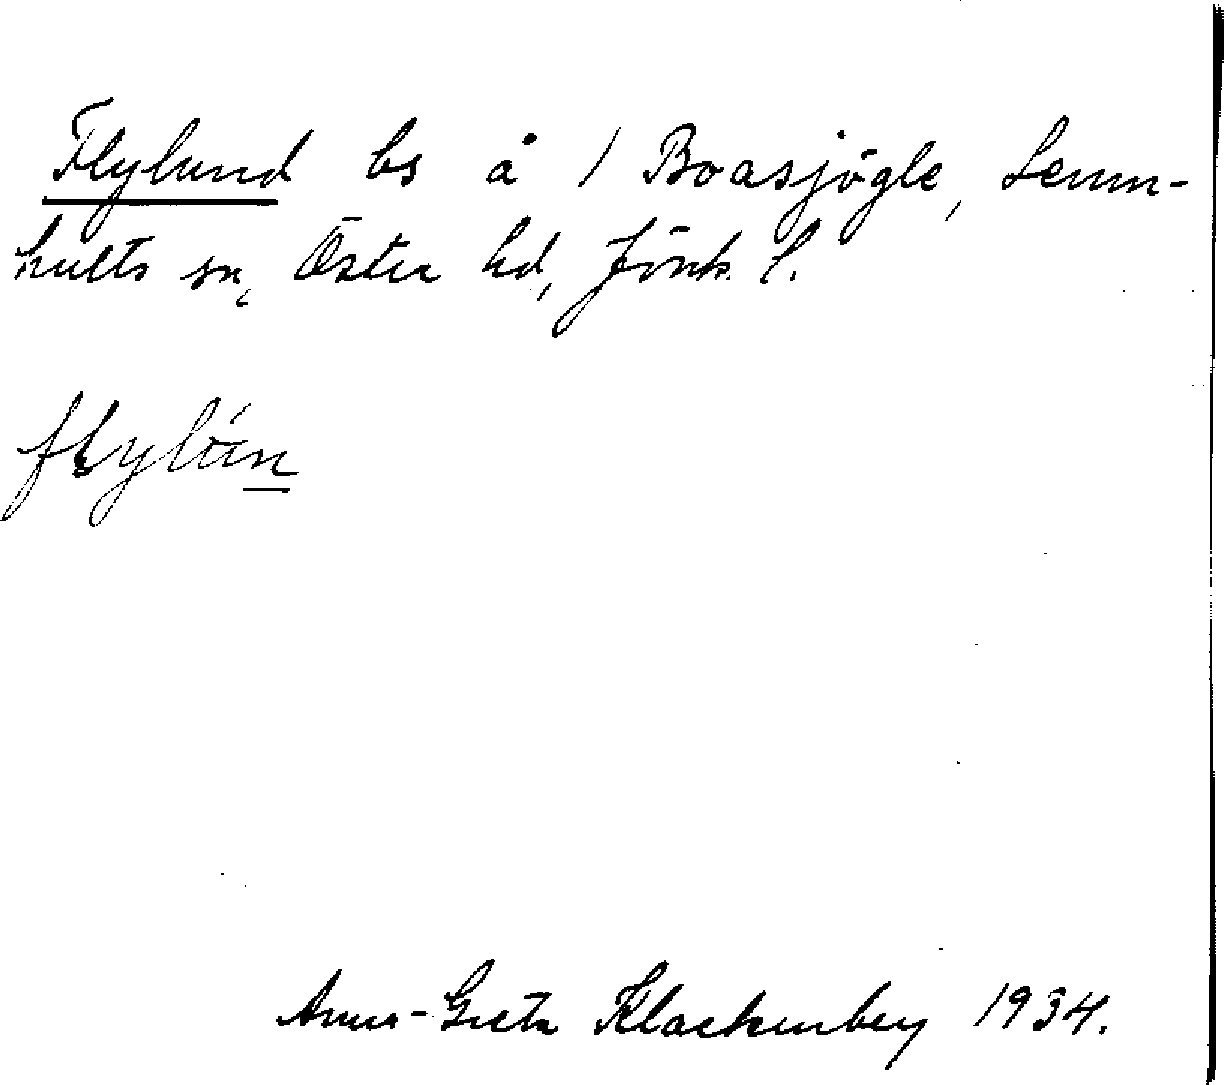 Flylund bs å 1 Boasjögle, Lemn-
hults sn, Öster hd, Jönk. l.
Anna-Greta Klackenberg 1934.